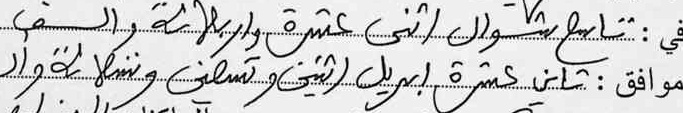 في : تاسع شوال اثني عشرة واربعمائة والف
موافق : ثاني عشرة ابريل اثنين وتسعين وتسعمائة وال